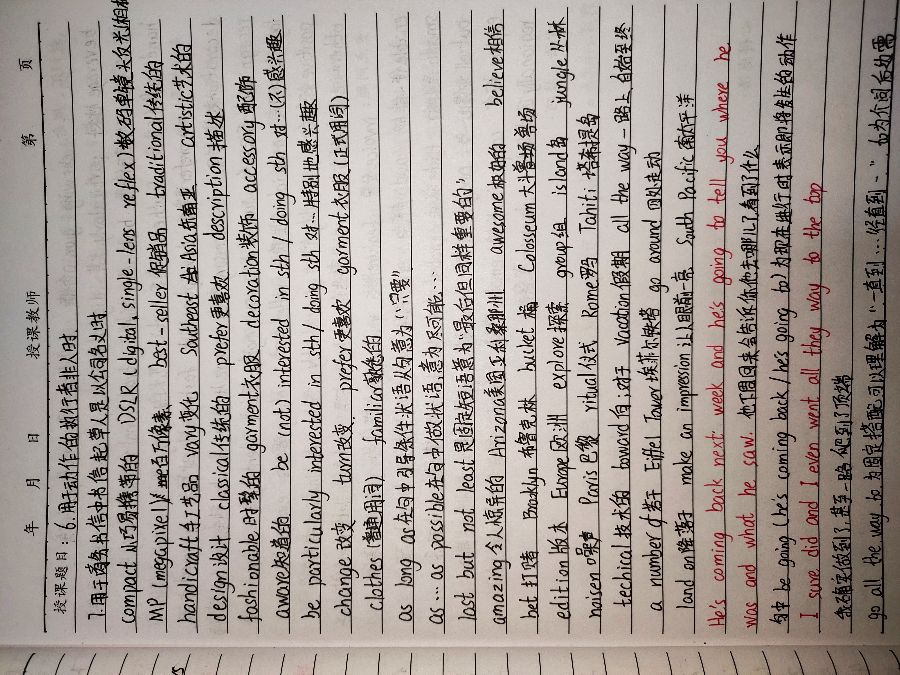 年 月 日 授课教师 第 页
授课题目: 6. 用于动作的执行者非人时
7. 用于商务书信中书信起草人是以公司名义时
compact 小巧易携带的 DSLR (digital, single-lens reflex) 数码单镜大反光(相机
MP (megapixel) 百万像素 best-seller 促销品 traditional传统的
handicraft手工艺品 vary变化 Southeast Asia东南亚 artistic艺术的
design设计 classical传统的 prefer更喜欢 description描述
fashionable时髦的 garment衣服 decoration装饰 accessory配饰
aware知道的 be (not) interested in sth / doing sth 对…(不)感兴趣
be particularly interested in sth / doing sth 对…特别地感兴趣
change 改变 turn改变 prefer更喜欢 garment衣服(正式用词)
clothes(普通用词) familiar熟悉的
as long as 在句中引导条件状语从句意为“只要”
as … as possible在句中做状语,意为尽可能…
last but not least是固定短语意为“最后但同样重要的”
amazing令人惊异的 Arizona美国亚利桑那州 awesome极好的 believe相信
bet打赌 Brooklyn布鲁克林 bucket桶 Colosseum大斗兽场
edition版本 Europe欧洲 explore探索 group组 island岛 jungle丛林
noisen噪声 Paris巴黎 ritual仪式 Rome罗马 Tahiti塔希提岛
techical技术的 toward向;对于 vacation假期 all the way一路上,自始至终
a number of若干 Eiffel Tower埃菲尔铁塔 go around四处走动
land on降落于 make an impression让人眼前一亮 South Pacific南太平洋
He's coming back next week and he's going to tell you where he
was and what he saw. 他下周回来会告诉你他去哪儿了,看到了什么
句中be going (he's coming back/he's going to)为现在进行时表示即将发生的动作
I sure did and I even went all they way to the top
我确实做到了,甚至一路爬到了顶端
go all the way to为固定搭配,可以理解为“一直到…,径直到…”, to为介词后边需